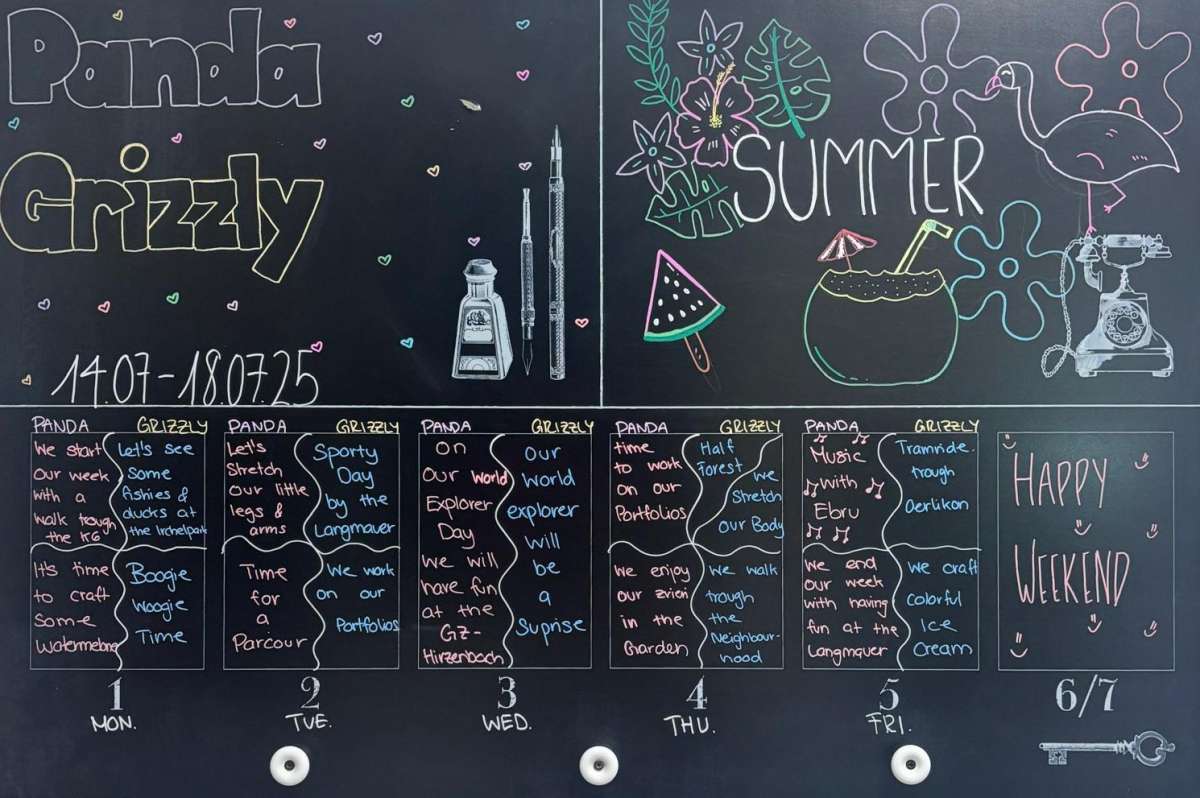 Panda
Grizzly
14.07-18.07.25
SUMMER
PANDA
GRIZZLY
We start
our week
with a
walk trough
the K6
Let's see
some
fishies &
ducks at
the Irchelpark
It's time
to craft
some
watermelons
Boogie
Woogie
Time
PANDA
GRIZZLY
Let's
Stretch
our little
legs &
arms
Sporty
Day
by the
Langmauer
Time
for
a
Parcour
We work
on our
Portfolios
PANDA
GRIZZLY
On
our world
Explorer
Day
we will
have fun
at the
GZ-
Hirzenbach
Our
world
explorer
will
be
a
Suprise
PANDA
GRIZZLY
time
to work
on our
Portfolios
Half
Forest
We
Stretch
our Body
We enjoy
our zvieri
in the
Garden
We walk
trough
the
Neighbour-
hood
PANDA
GRIZZLY
Music
with
Ebru
Tramride
trough
Oerlikon
We end
our week
with having
fun at the
Langmauer
We craft
colorful
Ice
Cream
HAPPY
WEEKEND
1
MON.
2
TUE.
3
WED.
4
THU.
5
FRI.
6/7